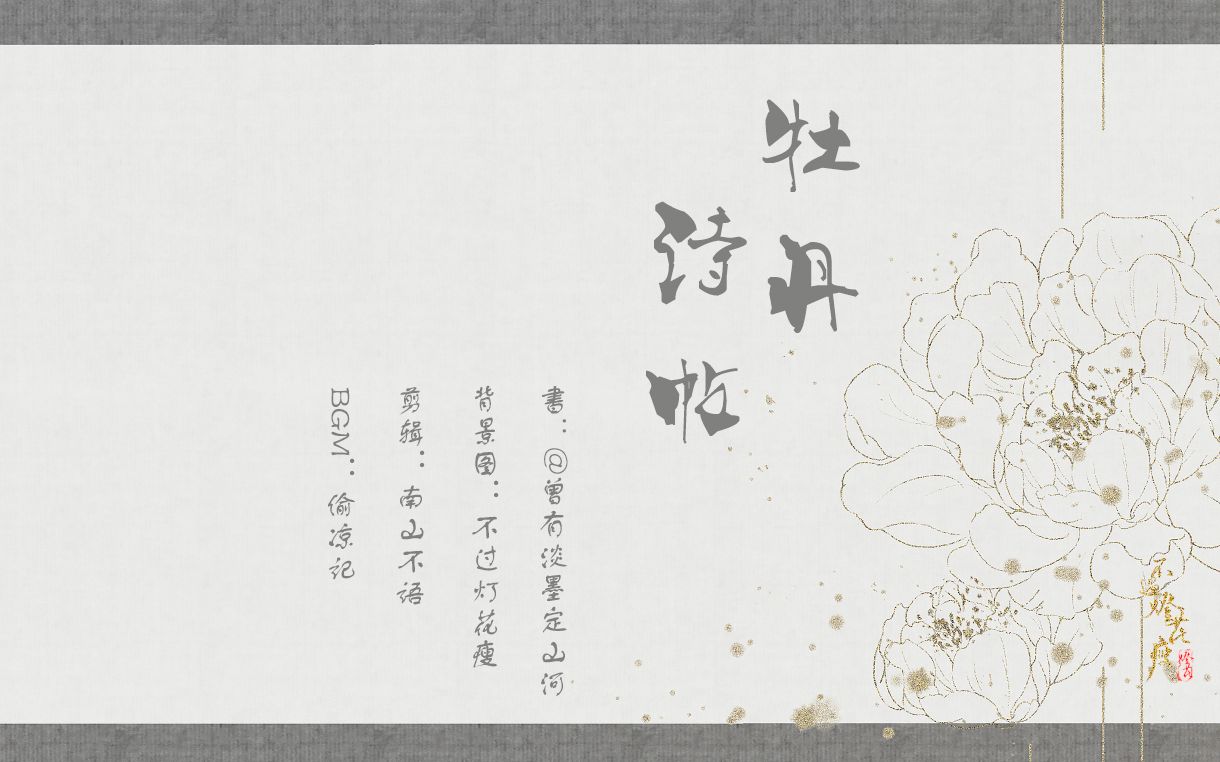 牡丹
诗帖
書：@曾有淡墨定山河
背景图：不过灯花瘦
剪辑：南山不语
BGM：偷凉记